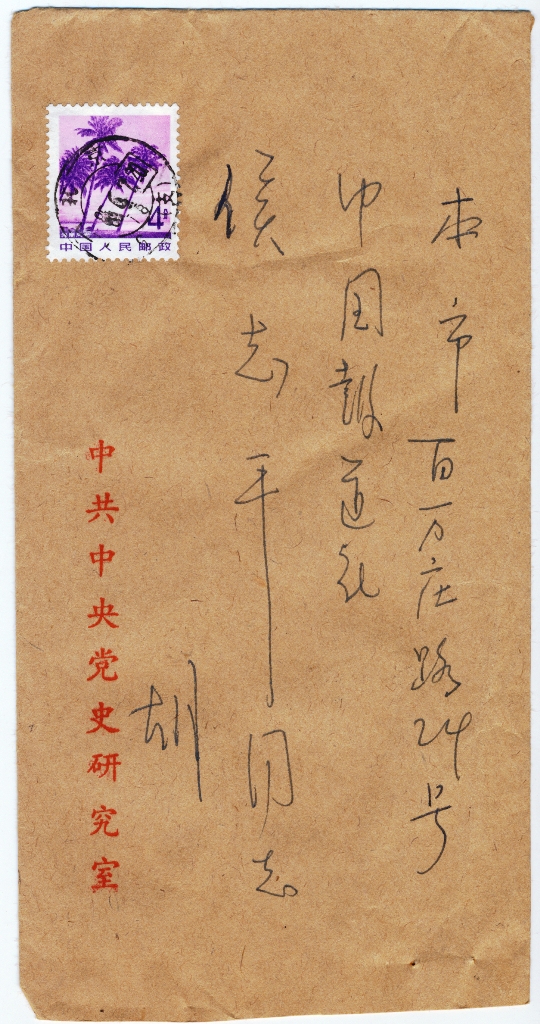 本市百万庄路24号
中国报道社
侯志平同志
胡
中共中央党史研究室
中国人民邮政
4